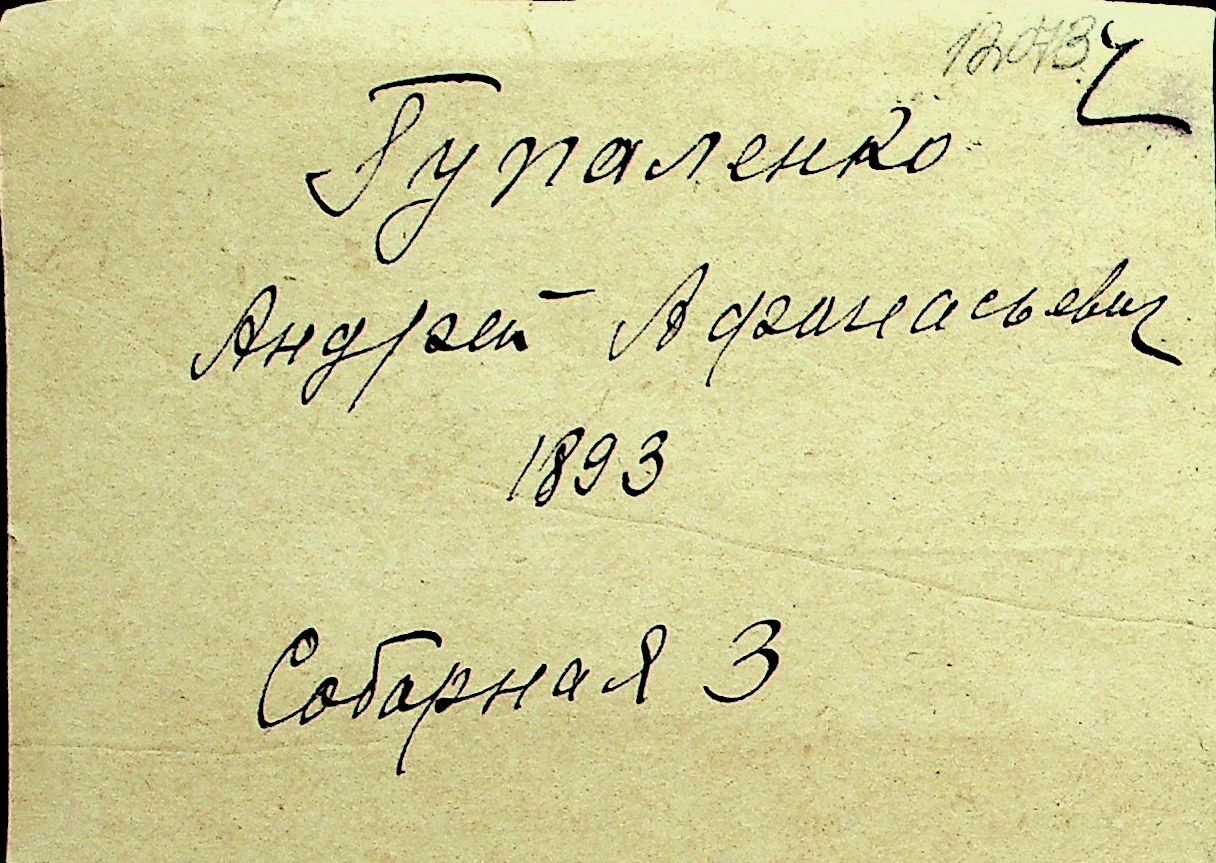 Гупаленко
Андрей Афанасьевич
1893
Соборная 3